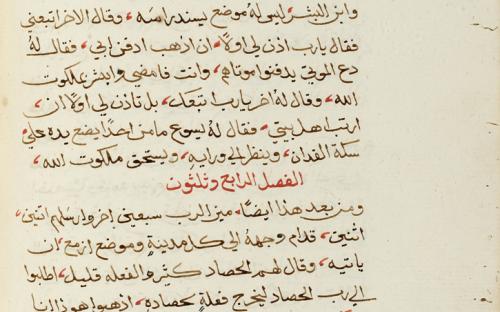 وابن البشر ليس له موضع يسند راسه، وقال الاخر اتبعني
فقال يارب اذن لي اولا، ان اذهب ادفن ابي، فقال له
دع الموتي يدفنوا موتاهم، وانت فامضي وابشر بملكوت
الله، وقال له اخر يارب اتبعك، بل تاذن لي اولا ان،
ارتب اهل بيتي، فقال له يسوع ما من احد يضع يده علي
سكة الفدان، وينظر الي ورايه، ويستحق ملكوت الله،
الفصل الرابع وثلثون
ومن بعد هذا ايضا، ميز الرب سبعين اخر وارسلهم اثنين،
اثنين، قدام وجهه الي كل مدينة وموضع ازمع، ان
ياتيه، وقال لهم الحصاد كثير والفعله قليل، اطلبوا
الي رب الحصاد ليخرج فعلة لحصاده، اذهبوا هوذا انا